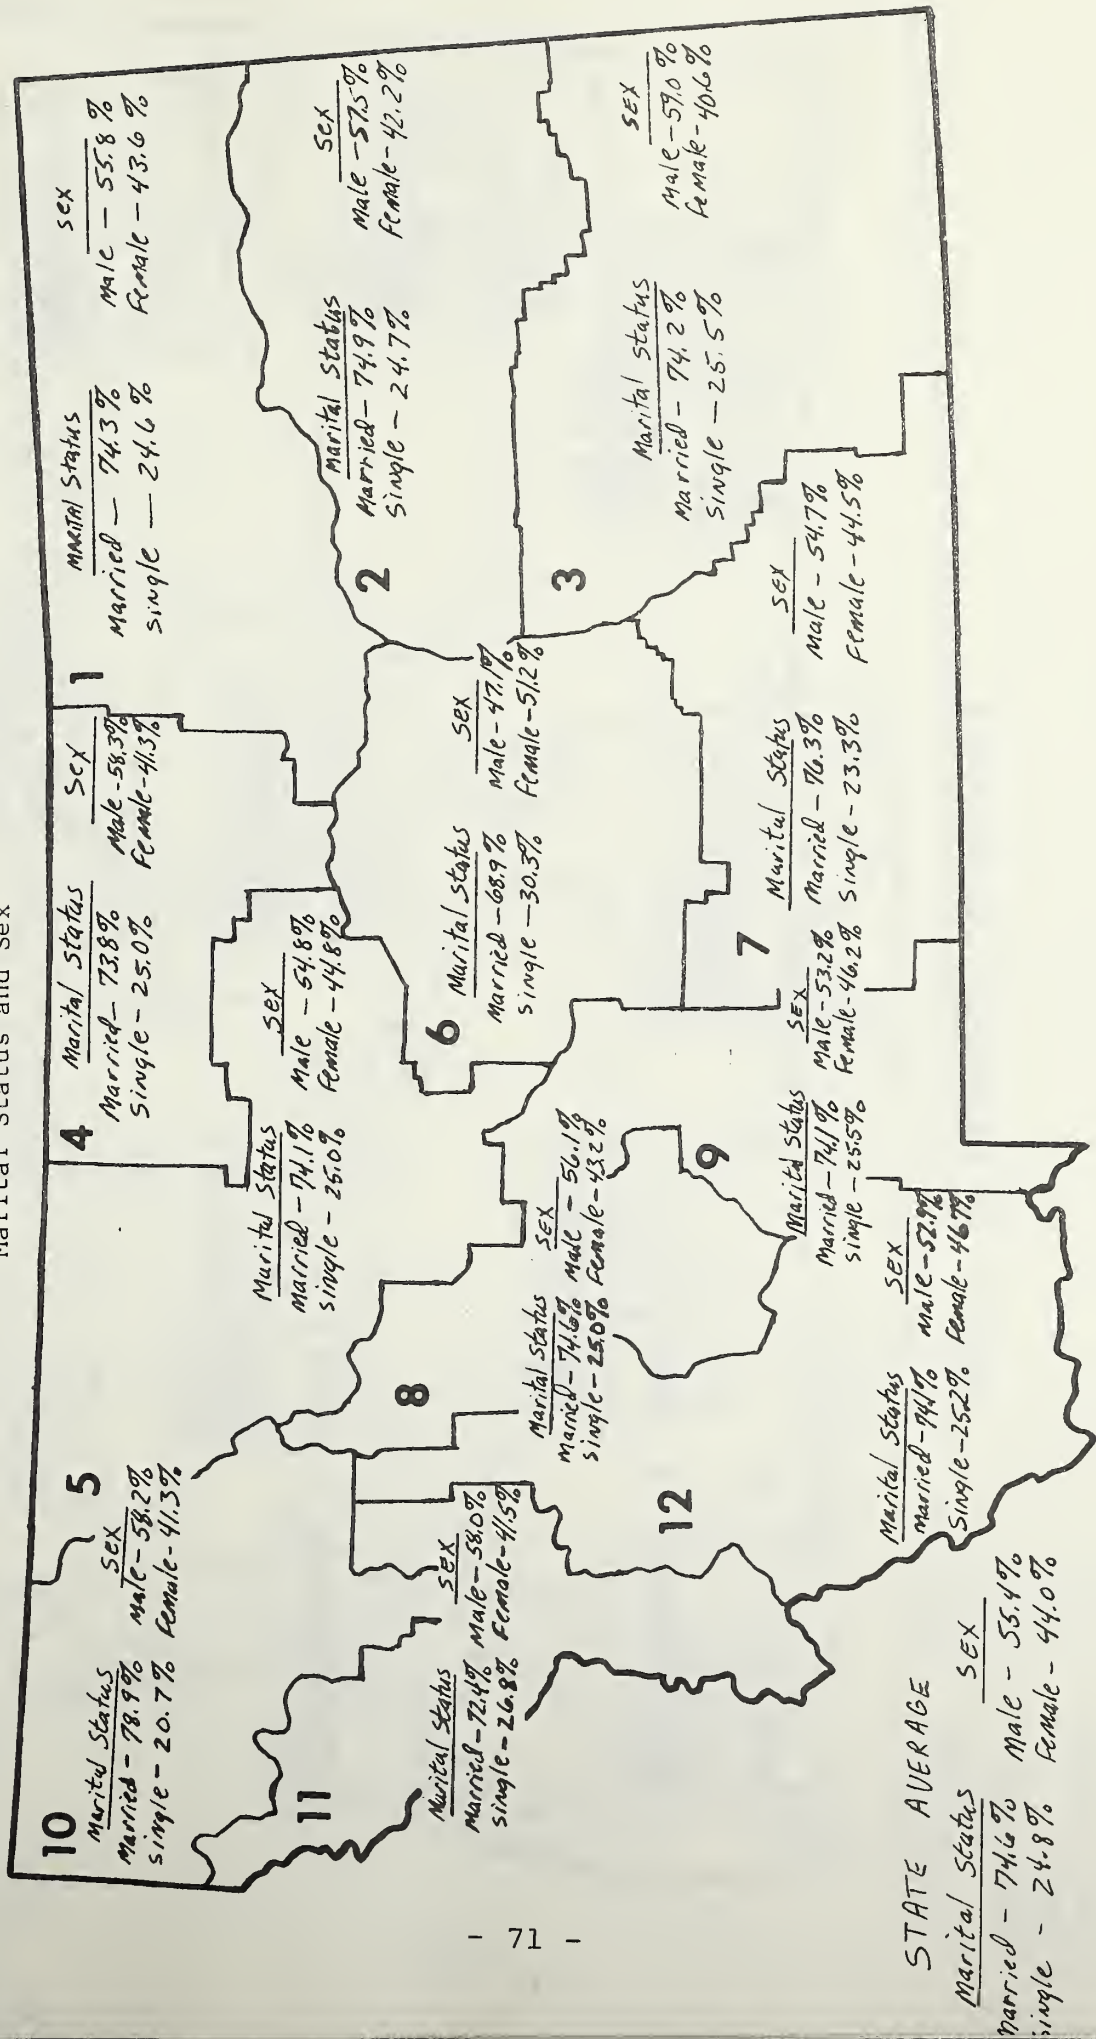 Marital Status and Sex
10
Marital Status
Married - 78.9%
Single - 20.7%
5
Sex
Male - 58.2%
Female - 41.3%
4
Marital Status
Married - 73.8%
Single - 25.0%
Sex
Male - 58.3%
Female - 41.3%
1
MARITAL Status
Married — 74.3%
Single — 24.6%
Sex
Male — 55.8%
Female - 43.6%
Marital Status
Married - 74.1%
Single - 25.0%
Sex
Male - 54.8%
Female - 44.8%
2
Marital Status
Married - 74.9%
Single - 24.7%
Sex
Male - 57.5%
Female - 42.2%
11
Marital Status
Married - 72.4%
Single - 26.8%
Sex
Male - 58.0%
Female - 41.5%
8
Marital Status
Married - 74.6%
Single - 25.0%
Sex
Male - 56.1%
Female - 43.2%
6
Marital Status
Married - 68.9%
Single - 30.3%
Sex
Male - 47.1%
Female - 51.2%
3
Marital Status
Married - 74.2%
Single - 25.5%
Sex
Male - 59.0%
Female - 40.6%
12
Marital Status
Married - 74.1%
Single - 25.2%
Sex
Male - 52.9%
Female - 46.7%
9
Marital Status
Married - 74.1%
Single - 25.5%
Sex
Male - 53.2%
Female - 46.2%
7
Marital Status
Married - 76.3%
Single - 23.3%
Sex
Male - 54.7%
Female - 44.5%
STATE AVERAGE
Marital Status
Married - 74.6%
Single - 24.8%
SEX
Male - 55.4%
Female - 44.0%
- 71 -